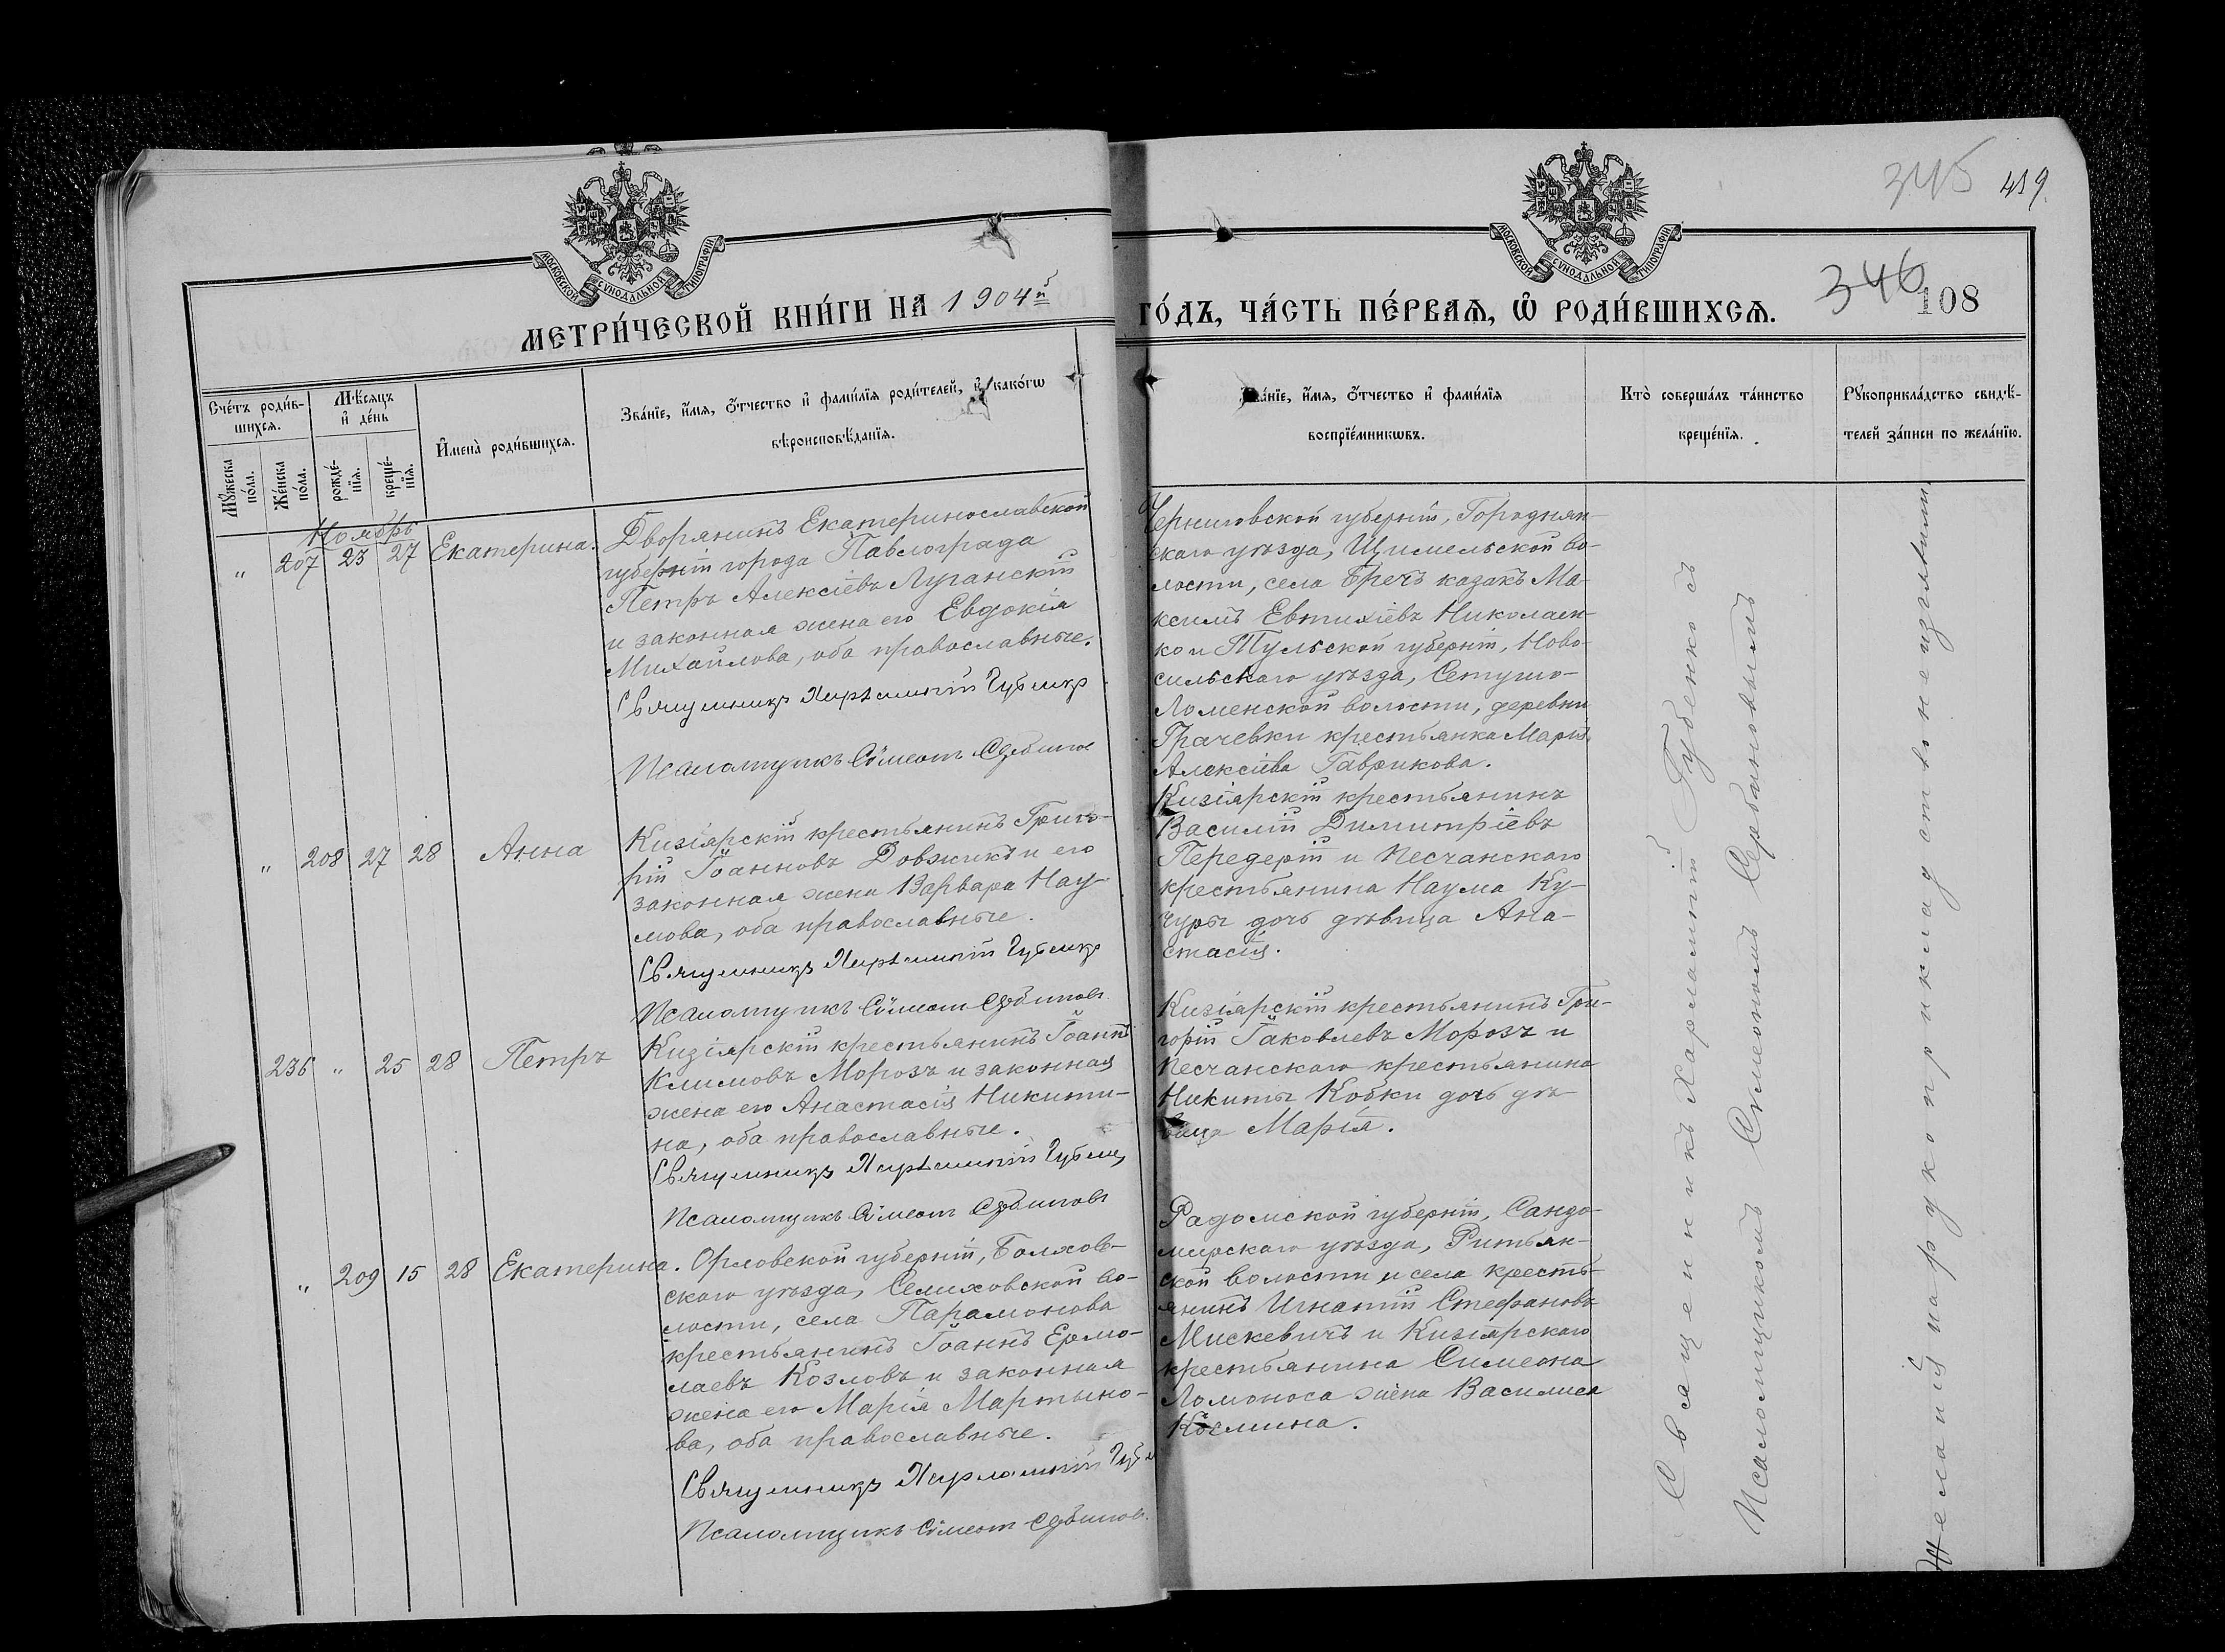 345 419.
346
108
МОСКОВСКОЙ СѴНОДАЛЬНОЙ ТИПОГРАФІИ
МОСКОВСКОЙ СѴНОДАЛЬНОЙ ТИПОГРАФІИ
МЕТРИ́ЧЕСКОЙ КНИ́ГИ НА 1904й
ГО́ДЪ, ЧА́СТЬ ПЕ́РВАѦ, Ѡ҆ РОДИ́ВШИХСѦ.
Сче́тъ роди́в-
шихсѧ.
Мꙋ́жеска
по́ла.
Же́нска
по́ла.
Мѣ́сѧцъ
и҆ де́нь
рожде́-
нїѧ.
креще́-
нїѧ.
И҆мена̀ роди́вшихсѧ.
Зва́нїе, и҆́мѧ, ѻ҆́тчество и҆ фами́лїѧ роди́телей, и҆ како́гѡ
вѣроисповѣ́данїѧ.
Зва́нїе, и҆́мѧ, ѻ҆́тчество и҆ фами́лїѧ
воспрїе́мникѡвъ.
Кто̀ соверша́лъ та́инство
креще́нїѧ.
Рꙋкоприкла́дство свидѣ́-
телей за́писи по жела́нїю.
Ноябрь
" 207 23 27 Екатерина.
Дворянинъ Екатеринославской
губерніи города Павлограда
Петръ Алексіевъ Луганскій
и законная жена его Евдокія
Михайлова, оба православные.
Священникъ Харлампій Губенко
Псаломщикъ Сѵмеонъ Сербиновъ
Черниговской губерніи, Городнян-
скаго уѣзда, Щимельской во-
лости, села Бречъ казакъ Ма-
ксимъ Евтихіевъ Николаен-
ко и Тульской губерніи, Ново-
сильскаго уѣзда, Сетушо-
Ломенской волости, деревни
Грачевки крестьянка Марія
Алексіева Гаврикова.
" 208 27 28 Анна
Кизіярскій крестьянинъ Григо-
рій Іоанновъ Довжикъ и его
законная жена Варвара Нау-
мова, оба православные.
Священникъ Харлампій Губенко
Псаломщикъ Сѵмеонъ Сербиновъ.
Кизіярскій крестьянинъ
Василій Димитріевъ
Передерій и Песчанскаго
крестьянина Наума Ку-
чуры дочь дѣвица Ана-
стасія.
236 " 25 28 Петръ
Кизіярскій крестьянинъ Іоаннъ
Климовъ Морозъ и законная
жена его Анастасія Никити-
на, оба православные.
Священникъ Харлампій Губенко
Псаломщикъ Сѵмеонъ Сербиновъ
Кизіярскій крестьянинъ Гри-
горій Іаковлевъ Морозъ и
Песчанскаго крестьянина
Никиты Кобки дочь дѣ-
вица Марія.
" 209 15 28 Екатерина.
Орловской губерніи, Болхов-
скаго уѣзда, Селиховской во-
лости, села Парамонова
крестьянинъ Іоаннъ Ермо-
лаевъ Козловъ и законная
жена его Марія Мартыно-
ва, оба православные.
Священникъ Харлампій Губен
Псаломщикъ Сѵмеонъ Сербиновъ.
Радомской губерніи, Сандо-
мирскаго уѣзда, Ритьян-
ской волости и села кресть-
янинъ Игнатій Стефановъ
Мискевичъ и Кизіярскаго
крестьянина Симеона
Ломоноса жена Василиса
Космина.
Священникъ Харлампій Губенко съ
Псаломщикомъ Симеономъ Сербиновымъ
Желанія на рукоприкладство не изъявили.